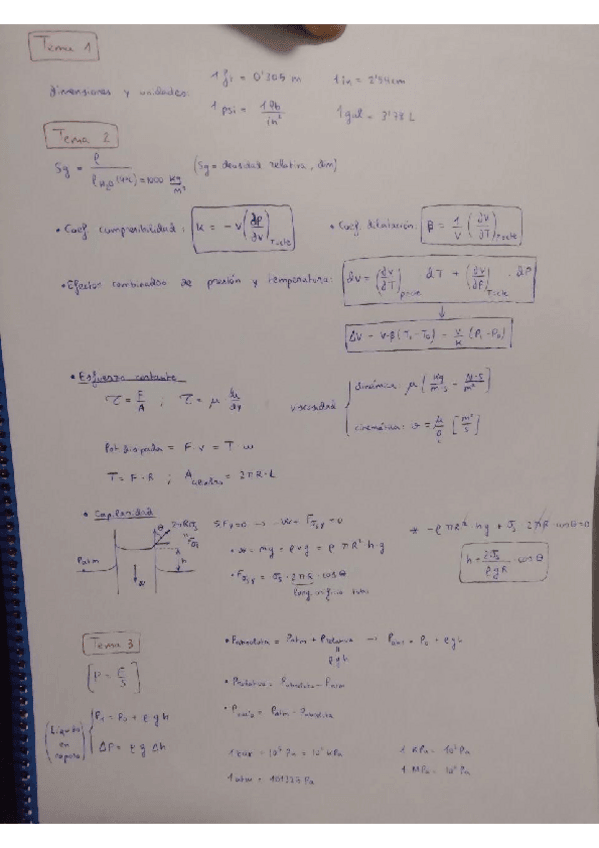 Tema 1
Dimensiones y unidades:
1 ft = 0'305 m    1 in = 2'54 cm
1 psi = 1 lb / in²    1 gal = 3'78 L
Tema 2
Sg = ρ / ρ H₂O (4ºC) = 1000 kg/m³    (Sg = densidad relativa, dim)
• Coef compresibilidad: K = -V (∂P/∂V) T=cte    • Coef dilatación: β = 1/V (∂V/∂T) P=cte
• Efectos combinados de presión y temperatura: dV = (∂V/∂T) P=cte dT + (∂V/∂P) T=cte · dP
↓
ΔV = V·β (T₁-T₀) - V/K (P₁-P₀)
• Esfuerzo cortante
τ = F/A ; τ = μ du/dy    viscosidad
dinámica: μ [kg/m·s = N·s/m²]
cinemática: ν = μ/ρ [m²/s]
Pot disipada = F·v = T ω
T = F·R ; A cilindro = 2πR·L
• Capilaridad
ΣFy=0 → -W + Fσs,y = 0
* -ρπR² hg + σs 2πR cosθ=0
• W = mg = ρVg = ρπR² h·g
• Fσs,y = σs · 2πR · cosθ
h = 2σs / ρgR · cosθ
Patm
θ
h
W
Tema 3
[P = F/S]
• Pabsoluta = Patm + Prelativa → Pabs = P₀ + ρgh
ρgh
• Prelativa = Pabsoluta - Patm
• Pvacío = Patm - Pabsoluta
(Líquido en reposo)
P₁ = P₀ + ρ·g·h
ΔP = ρg Δh
1 bar = 10⁵ Pa = 10² kPa    1 kPa = 10³ Pa
1 atm = 101325 Pa    1 MPa = 10⁶ Pa